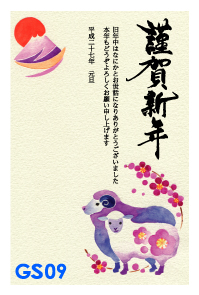 謹賀新年
旧年中はなにかとお世話になりありがとうございました
本年もどうぞよろしくお願い申し上げます
平成二十七年　元旦
GS09